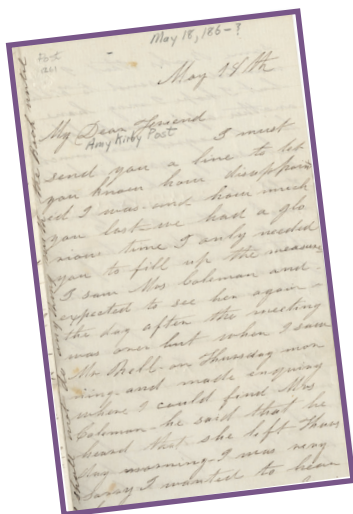 May 18, 185-?
Post
1861
May 18th
My Dear Friend
Amy Kirby Post
I must
send you a line to let
you know how disappoin
ted I was and how much
you lost we had a glo
rious time I only needed
you to fill up the measure
I saw Mrs Coleman and
expected to see her again -
the day after the meeting
was over but when I saw
Mr. Shell on Thursday mor
ning and made inquiry
where I could find Mrs
Coleman - he said that he
heard that she left Thurs
day morning I was very
sorry I wanted to hear